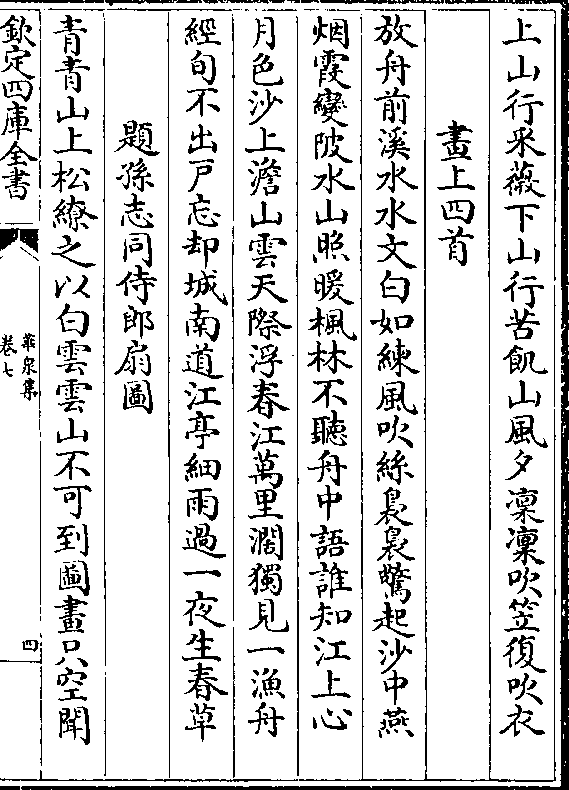 上山行采薇下山行苦飢山風夕凜凜吹笠復吹衣
畫上四首
放舟前溪水水文白如練風吹絲裊裊驚起沙中燕
烟霞變陂水山照暖楓林不聽舟中語誰知江上心
月色沙上澹山雲天際浮春江萬里濶獨見一漁舟
經旬不出戸忘却城南道江亭細雨過一夜生春草
題孫志同侍郎扇圖
青青山上松繚之以白雲雲山不可到圖畫只空聞
欽定四庫全書
華泉集
卷七
四